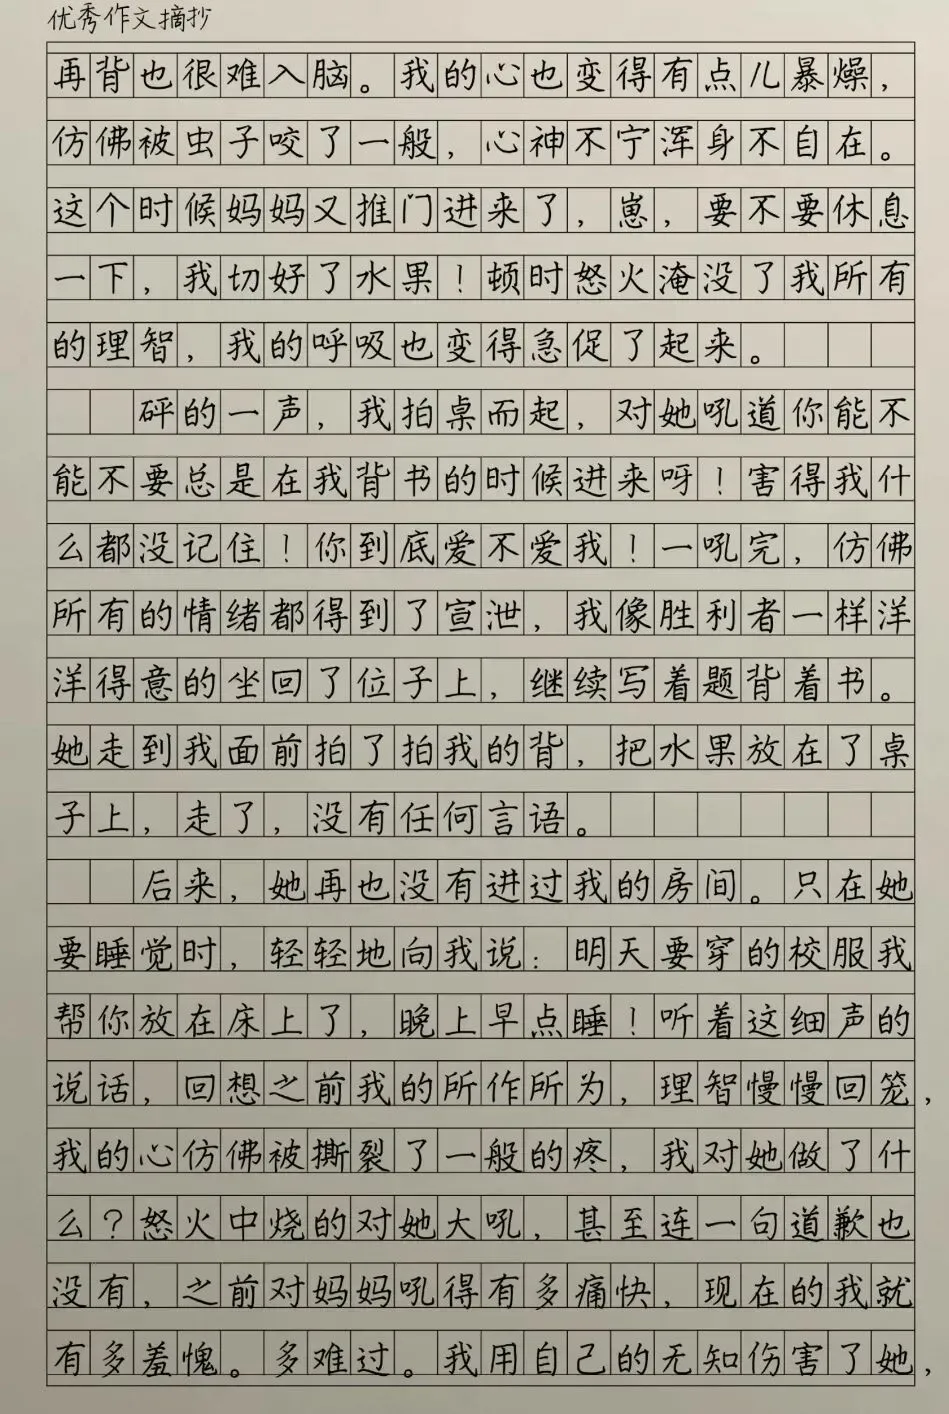 优秀作文摘抄
再背也很难入脑。我的心也变得有点儿暴燥，
仿佛被虫子咬了一般，心神不宁浑身不自在。
这个时候妈妈又推门进来了，崽，要不要休息
一下，我切好了水果！顿时怒火淹没了我所有
的理智，我的呼吸也变得急促了起来。
砰的一声，我拍桌而起，对她吼道你能不
能不要总是在我背书的时候进来呀！害得我什
么都没记住！你到底爱不爱我！一吼完，仿佛
所有的情绪都得到了宣泄，我像胜利者一样洋
洋得意的坐回了位子上，继续写着题背着书。
她走到我面前拍了拍我的背，把水果放在了桌
子上，走了，没有任何言语。
后来，她再也没有进过我的房间。只在她
要睡觉时，轻轻地向我说：明天要穿的校服我
帮你放在床上了，晚上早点睡！听着这细声的
说话，回想之前我的所作所为，理智慢慢回笼，
我的心仿佛被撕裂了一般的疼，我对她做了什
么？怒火中烧的对她大吼，甚至连一句道歉也
没有，之前对妈妈吼得有多痛快，现在的我就
有多羞愧。多难过。我用自己的无知伤害了她，